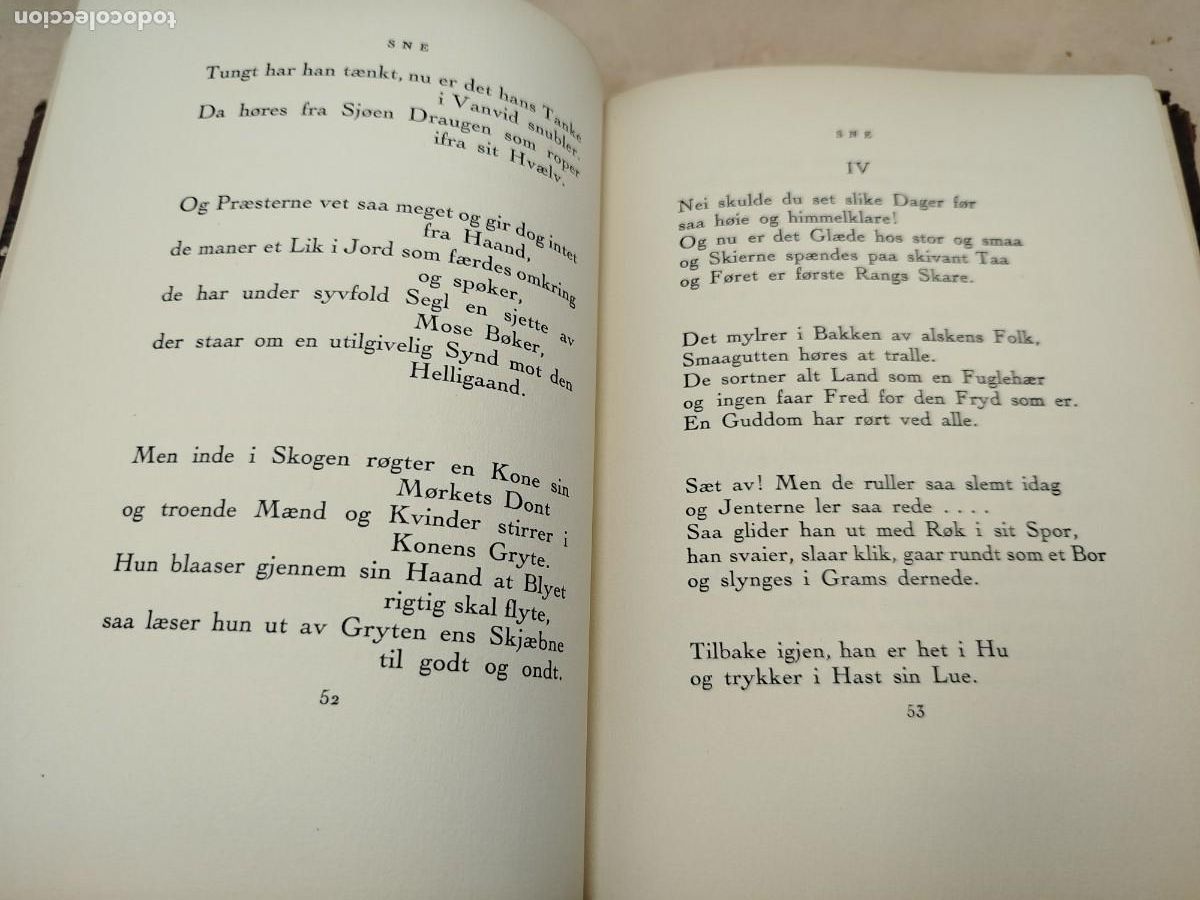 todocoleccion
SNE
Tungt har han tænkt, nu er det hans Tanke
i Vanvid snubler.
Da høres fra Sjøen Draugen som roper
ifra sit Hvælv.
Og Præsterne vet saa meget og gir dog intet
fra Haand,
de maner et Lik i Jord som færdes omkring
og spøker,
de har under syvfold Segl en sjette av
Mose Bøker,
der staar om en utilgivelig Synd mot den
Helligaand.
Men inde i Skogen røgter en Kone sin
Mørkets Dont
og troende Mænd og Kvinder stirrer i
Konens Gryte.
Hun blaaser gjennem sin Haand at Blyet
rigtig skal flyte,
saa læser hun ut av Gryten ens Skjæbne
til godt og ondt.
52
SNE
IV
Nei skulde du set slike Dager før
saa høie og himmelklare!
Og nu er det Glæde hos stor og smaa
og Skierne spændes paa skivant Taa
og Føret er første Rangs Skare.
Det mylrer i Bakken av alskens Folk,
Smaagutten høres at tralle.
De sortner alt Land som en Fuglehær
og ingen faar Fred for den Fryd som er.
En Guddom har rørt ved alle.
Sæt av! Men de ruller saa slemt idag
og Jenterne ler saa rede ....
Saa glider han ut med Røk i sit Spor,
han svaier, slaar klik, gaar rundt som et Bor
og slynges i Grams dernede.
Tilbake igjen, han er het i Hu
og trykker i Hast sin Lue.
53